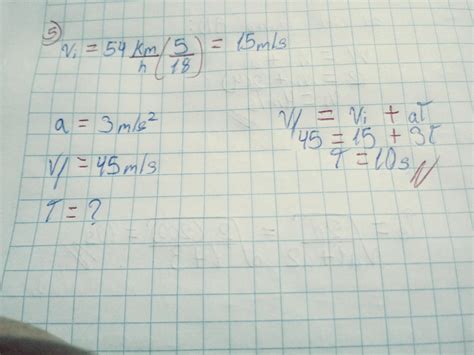 5 Vi = 54 km/h (5/18) = 15 m/s
a = 3 m/s²
Vf = 45 m/s
T = ?
Vf = Vi + aT
45 = 15 + 3T
T = 10 s